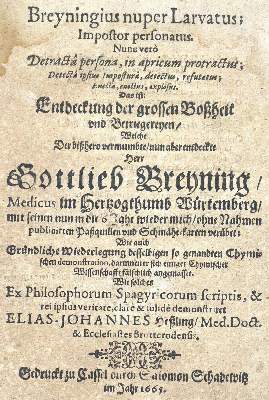 Breyningius nuper Larvatus;
Impostor personatus.
Nunc verò
Detractâ personâ, in apricum protractus;
Detectâ ipsius imposturâ, detectus, refutatus;
explosus.
Das ist:
Entdeckung der grossen Boßheit
und Betriegereyen/
Welche
Der bißhero vermumbte/nun aber entdeckte
Herr
Gottlieb Breyning/
Medicus im Hertzogthumb Würtemberg/
mit seinen nun in die 6 Jahr wieder mich/ohne Nahmen
publicirten Paßquillen und Schmähekarten verübet:
Wie auch
Gründliche Wiederlegung desselbigen so genandten Chymi-
schen demonstration, darinnen er sich einiger Chymischer
Wissenschafft fälschlich angemasset.
Wie solches
Ex Philosophorum Spagyricorum scriptis, &
rei ipsius veritate, clarè & solidè demonstriret
ELIAS-JOHANNES Heßling/Med. Doct.
& Ecclesiastes Brotterodensis.
Gedruckt zu Cassel durch Salomon Schadewitz
im Jahr 1663.